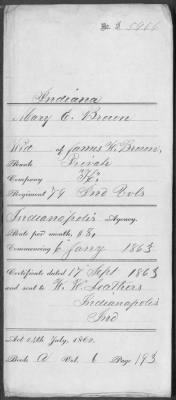 Indiana
Mary E. Brown
Wid of James W. Brown,
Rank Private
Company H,
Regiment 79 Ind Vols
Indianapolis Agency.
Rate per month, $8
Commencing 6 Jany 1863
Certificate dated 17 Sept 1863
and sent to W. W. Leathers
Indianapolis
Ind
Act 14th July, 1862.
Book A Vol. 1 Page 193